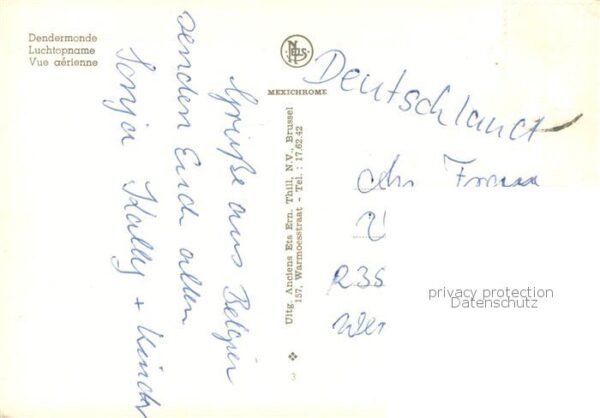 Dendermonde
Luchtopname
Vue aérienne
NELS
MEXICHROME
Grüße aus Belgien
senden Euch allen
Sonja Kally + Kinder
Uitg. Anciens Ets Ern. Thill, N.V., Brussel
157, Warmoesstraat - Tel. : 17.62.42
3
Deutschland
An Frau
R35
privacy protection
Datenschutz